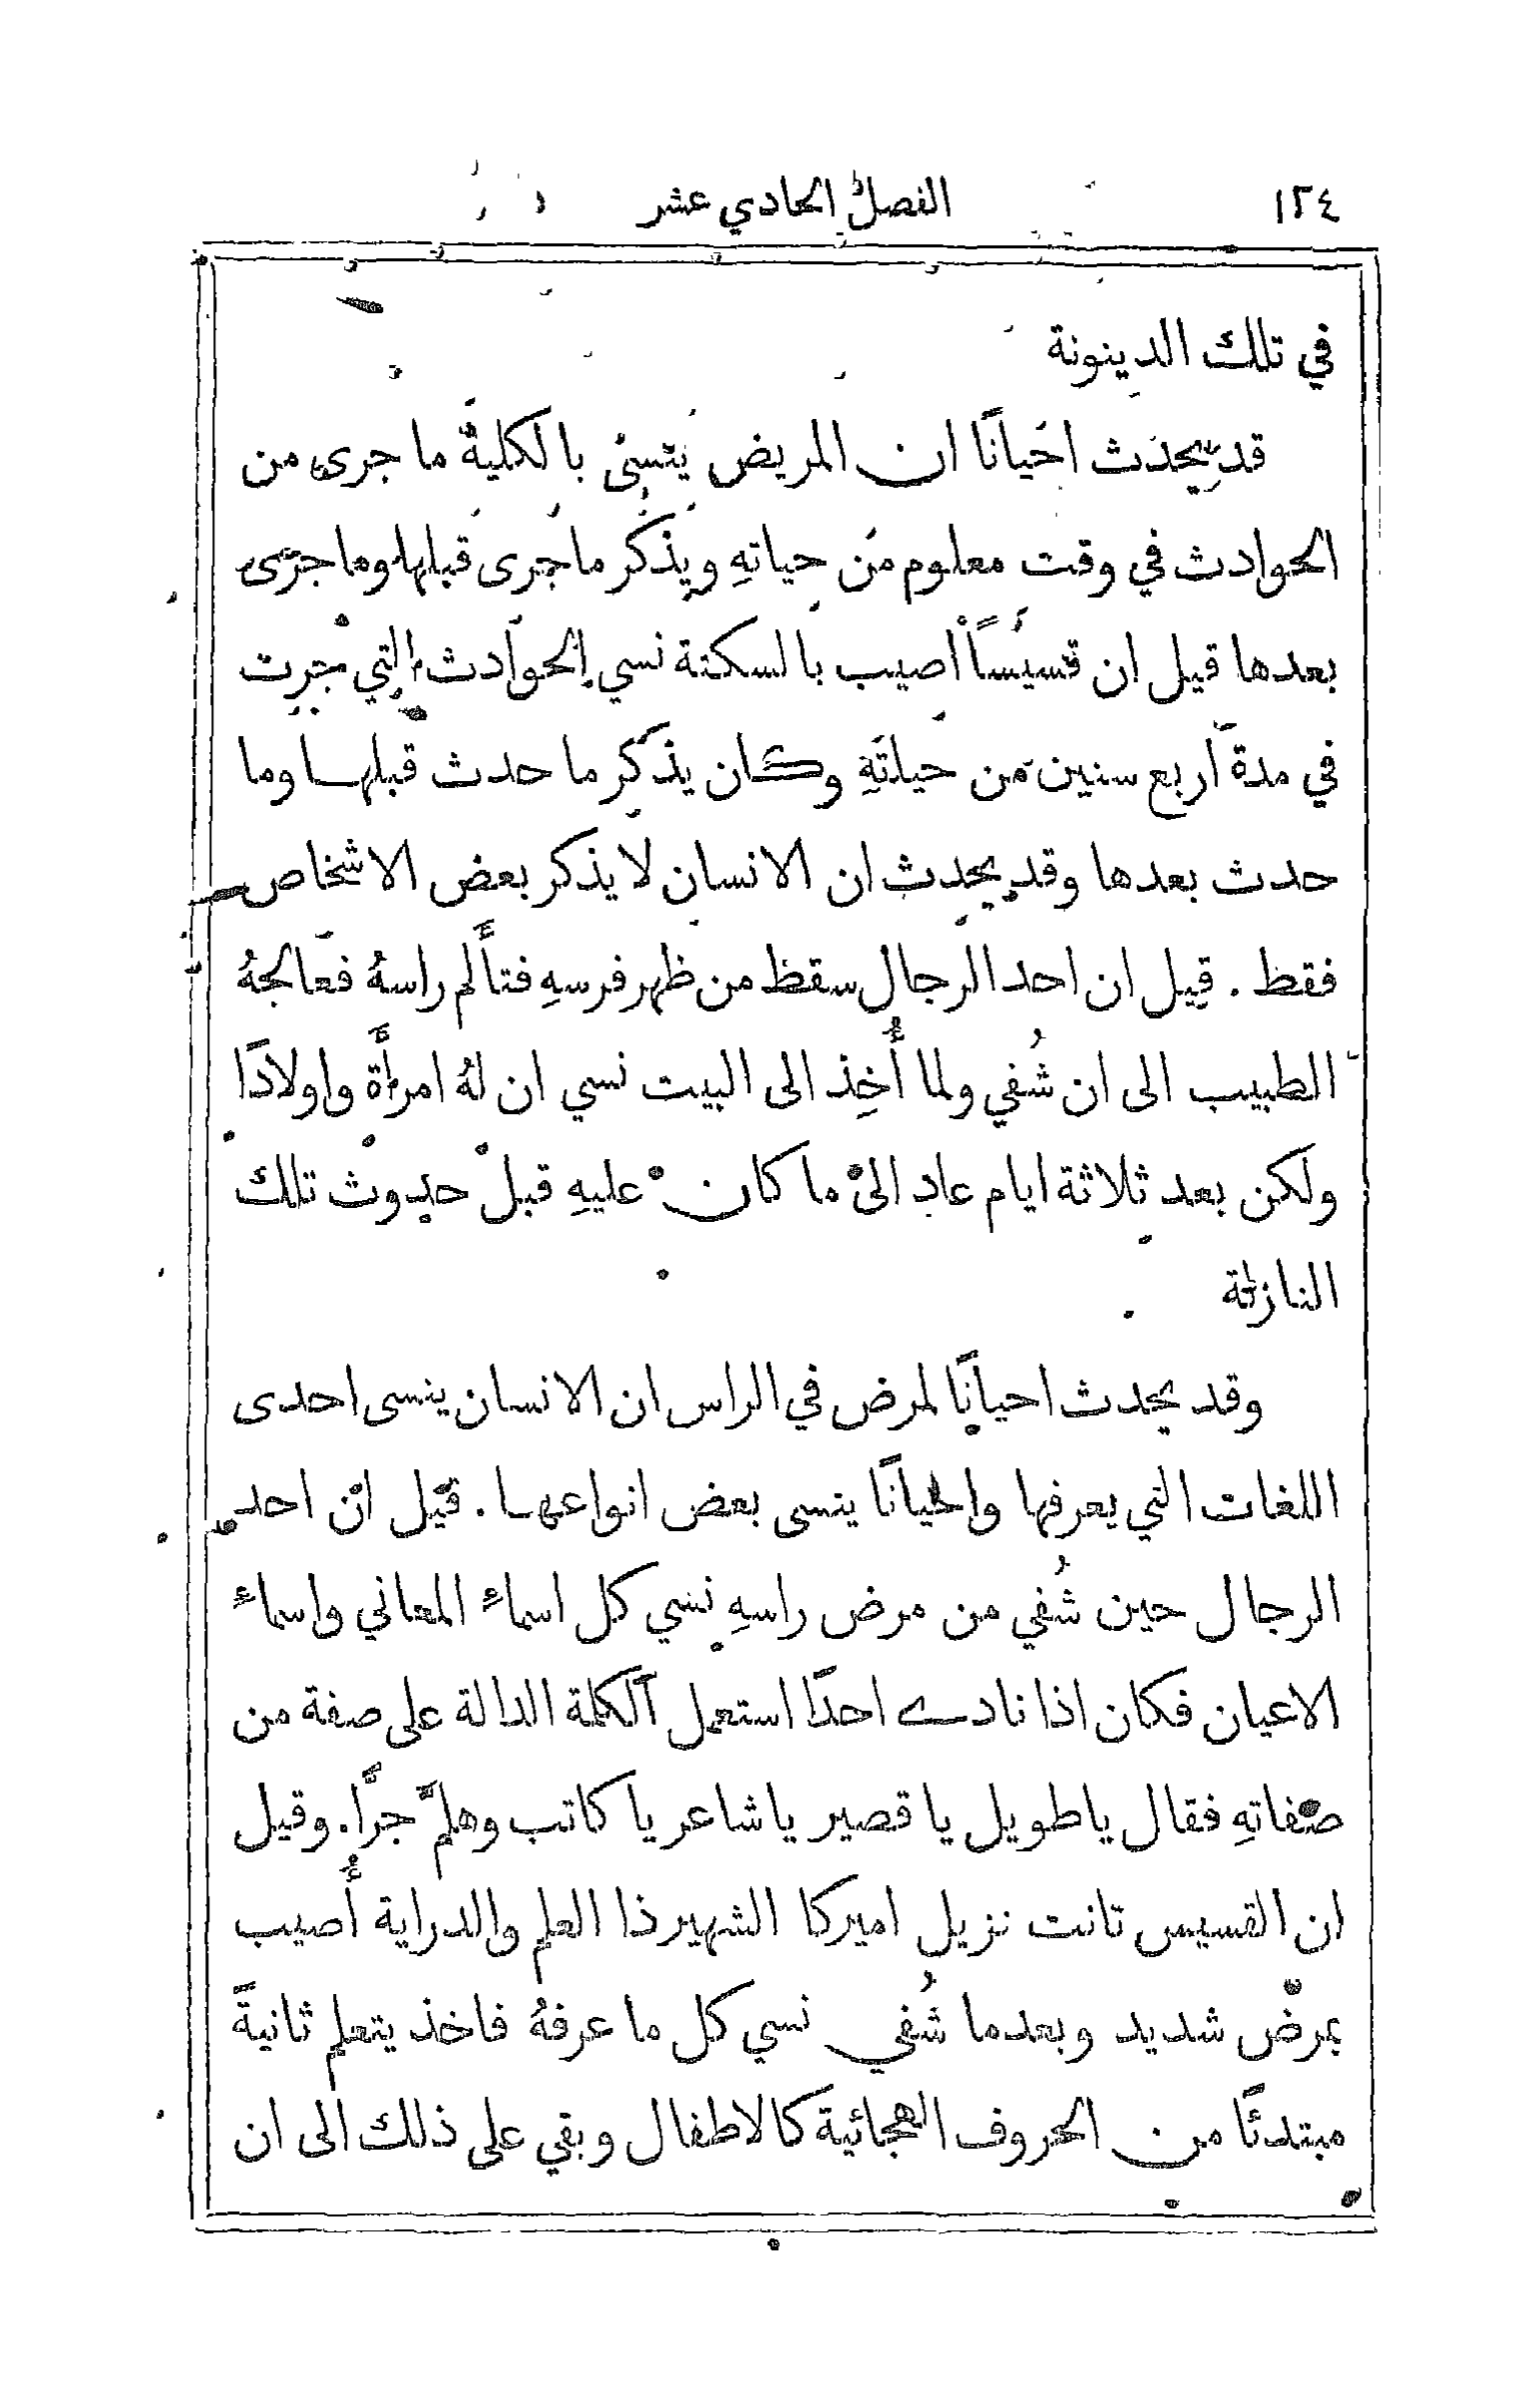 ١٢٤ الفصل الحادي عشر
في تلك الدينونة
قد يحدث احيانًا ان المريض ينسى بالكلية ما جرى من
الحوادث في وقت معلوم من حياتهِ ويذكر ما جرى قبلها وما جرى
بعدها قيل ان قسيسًا اصيب بالسكتة نسي الحوادث التي جرت
في مدة اربع سنين من حياتهِ وكان يذكر ما حدث قبلها وما
حدث بعدها وقد يحدث ان الانسان لا يذكر بعض الاشخاص
فقط . قيل ان احد الرجال سقط من ظهر فرسهِ فتأَلم راسهُ فعالجهُ
الطبيب الى ان شُفي ولما أُخِذ الى البيت نسي ان لهُ امرأَة واولادًا
ولكن بعد ثلاثة ايام عاد الى ما كان عليهِ قبل حدوث تلك
النازلة
وقد يحدث احيانًا لمرض في الراس ان الانسان ينسى احدى
اللغات التي يعرفها واحيانًا ينسى بعض انواعها . قيل ان احد
الرجال حين شُفي من مرض راسهِ نسي كل اسماءِ المعاني واسماءِ
الاعيان فكان اذا نادى احدًا استعمل الكلمة الدالة على صفة من
صفاتهِ فقال يا طويل يا قصير يا شاعر يا كاتب وهلمَّ جرًّا. وقيل
ان القسيس تانت نزيل اميركا الشهير ذا العلم والدراية أُصيب
بمرض شديد وبعدما شُفي نسي كل ما عرفهُ فاخذ يتعلم ثانيةً
مبتدئًا من الحروف الهجائية كالاطفال وبقي على ذلك الى ان